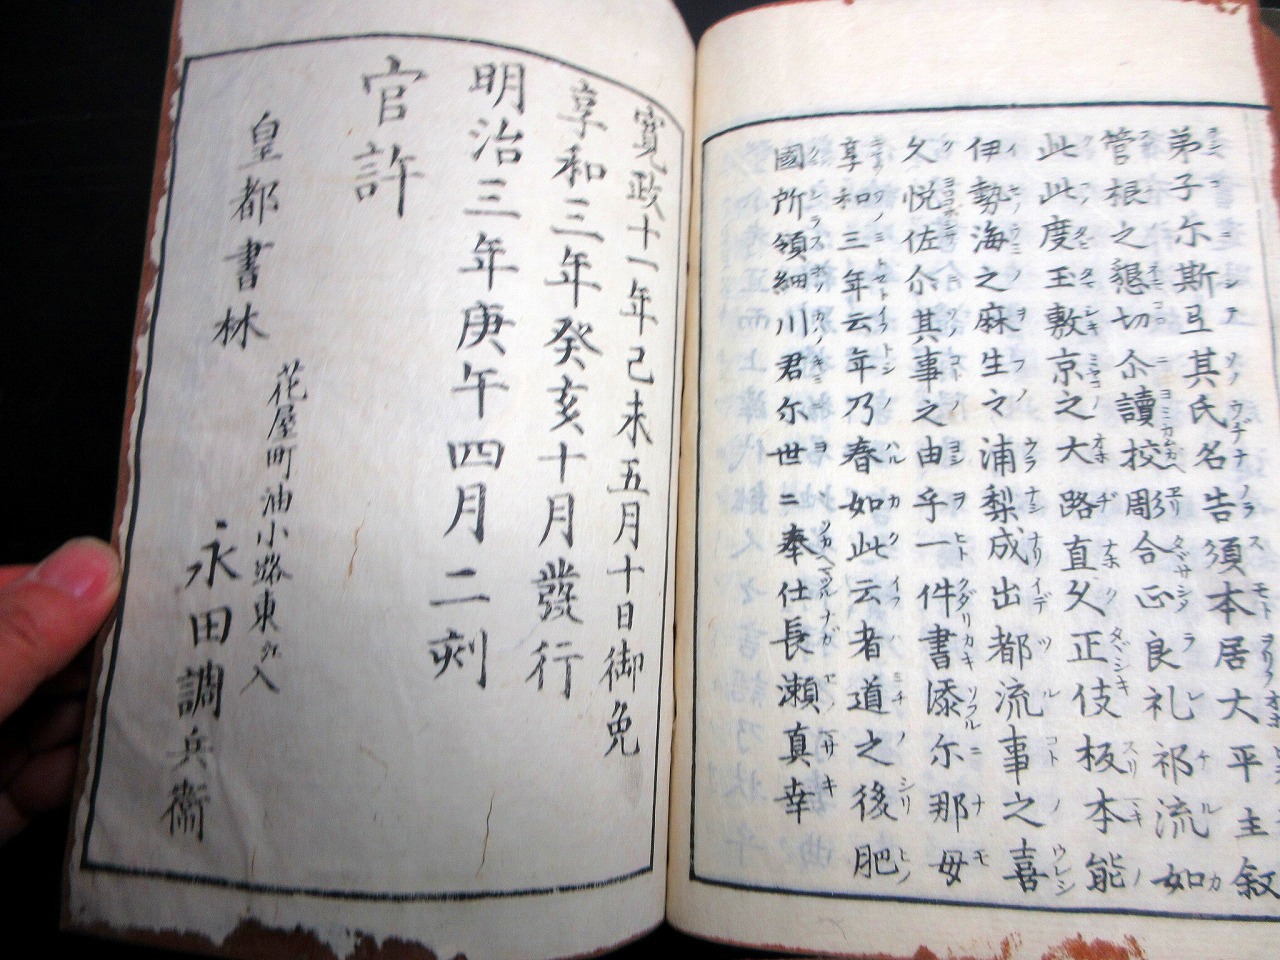 弟子尓斯弖其氏名告須本居大平主叙
管根之懇切尓讀校彫合正良礼祁流如
此此度玉敷京之大路直久正伎板本能
伊勢海之麻生之浦梨成出都流事之喜
久悦佐尓其事之由乎一件書添尓那毋
享和三年云年乃春如此云者道之後肥
國所領細川君尓世二奉仕長瀬真幸
寛政十一年己未五月十日御免
享和三年癸亥十月發行
明治三年庚午四月二刻
官許
皇都書林
花屋町油小路東入
永田調兵衛